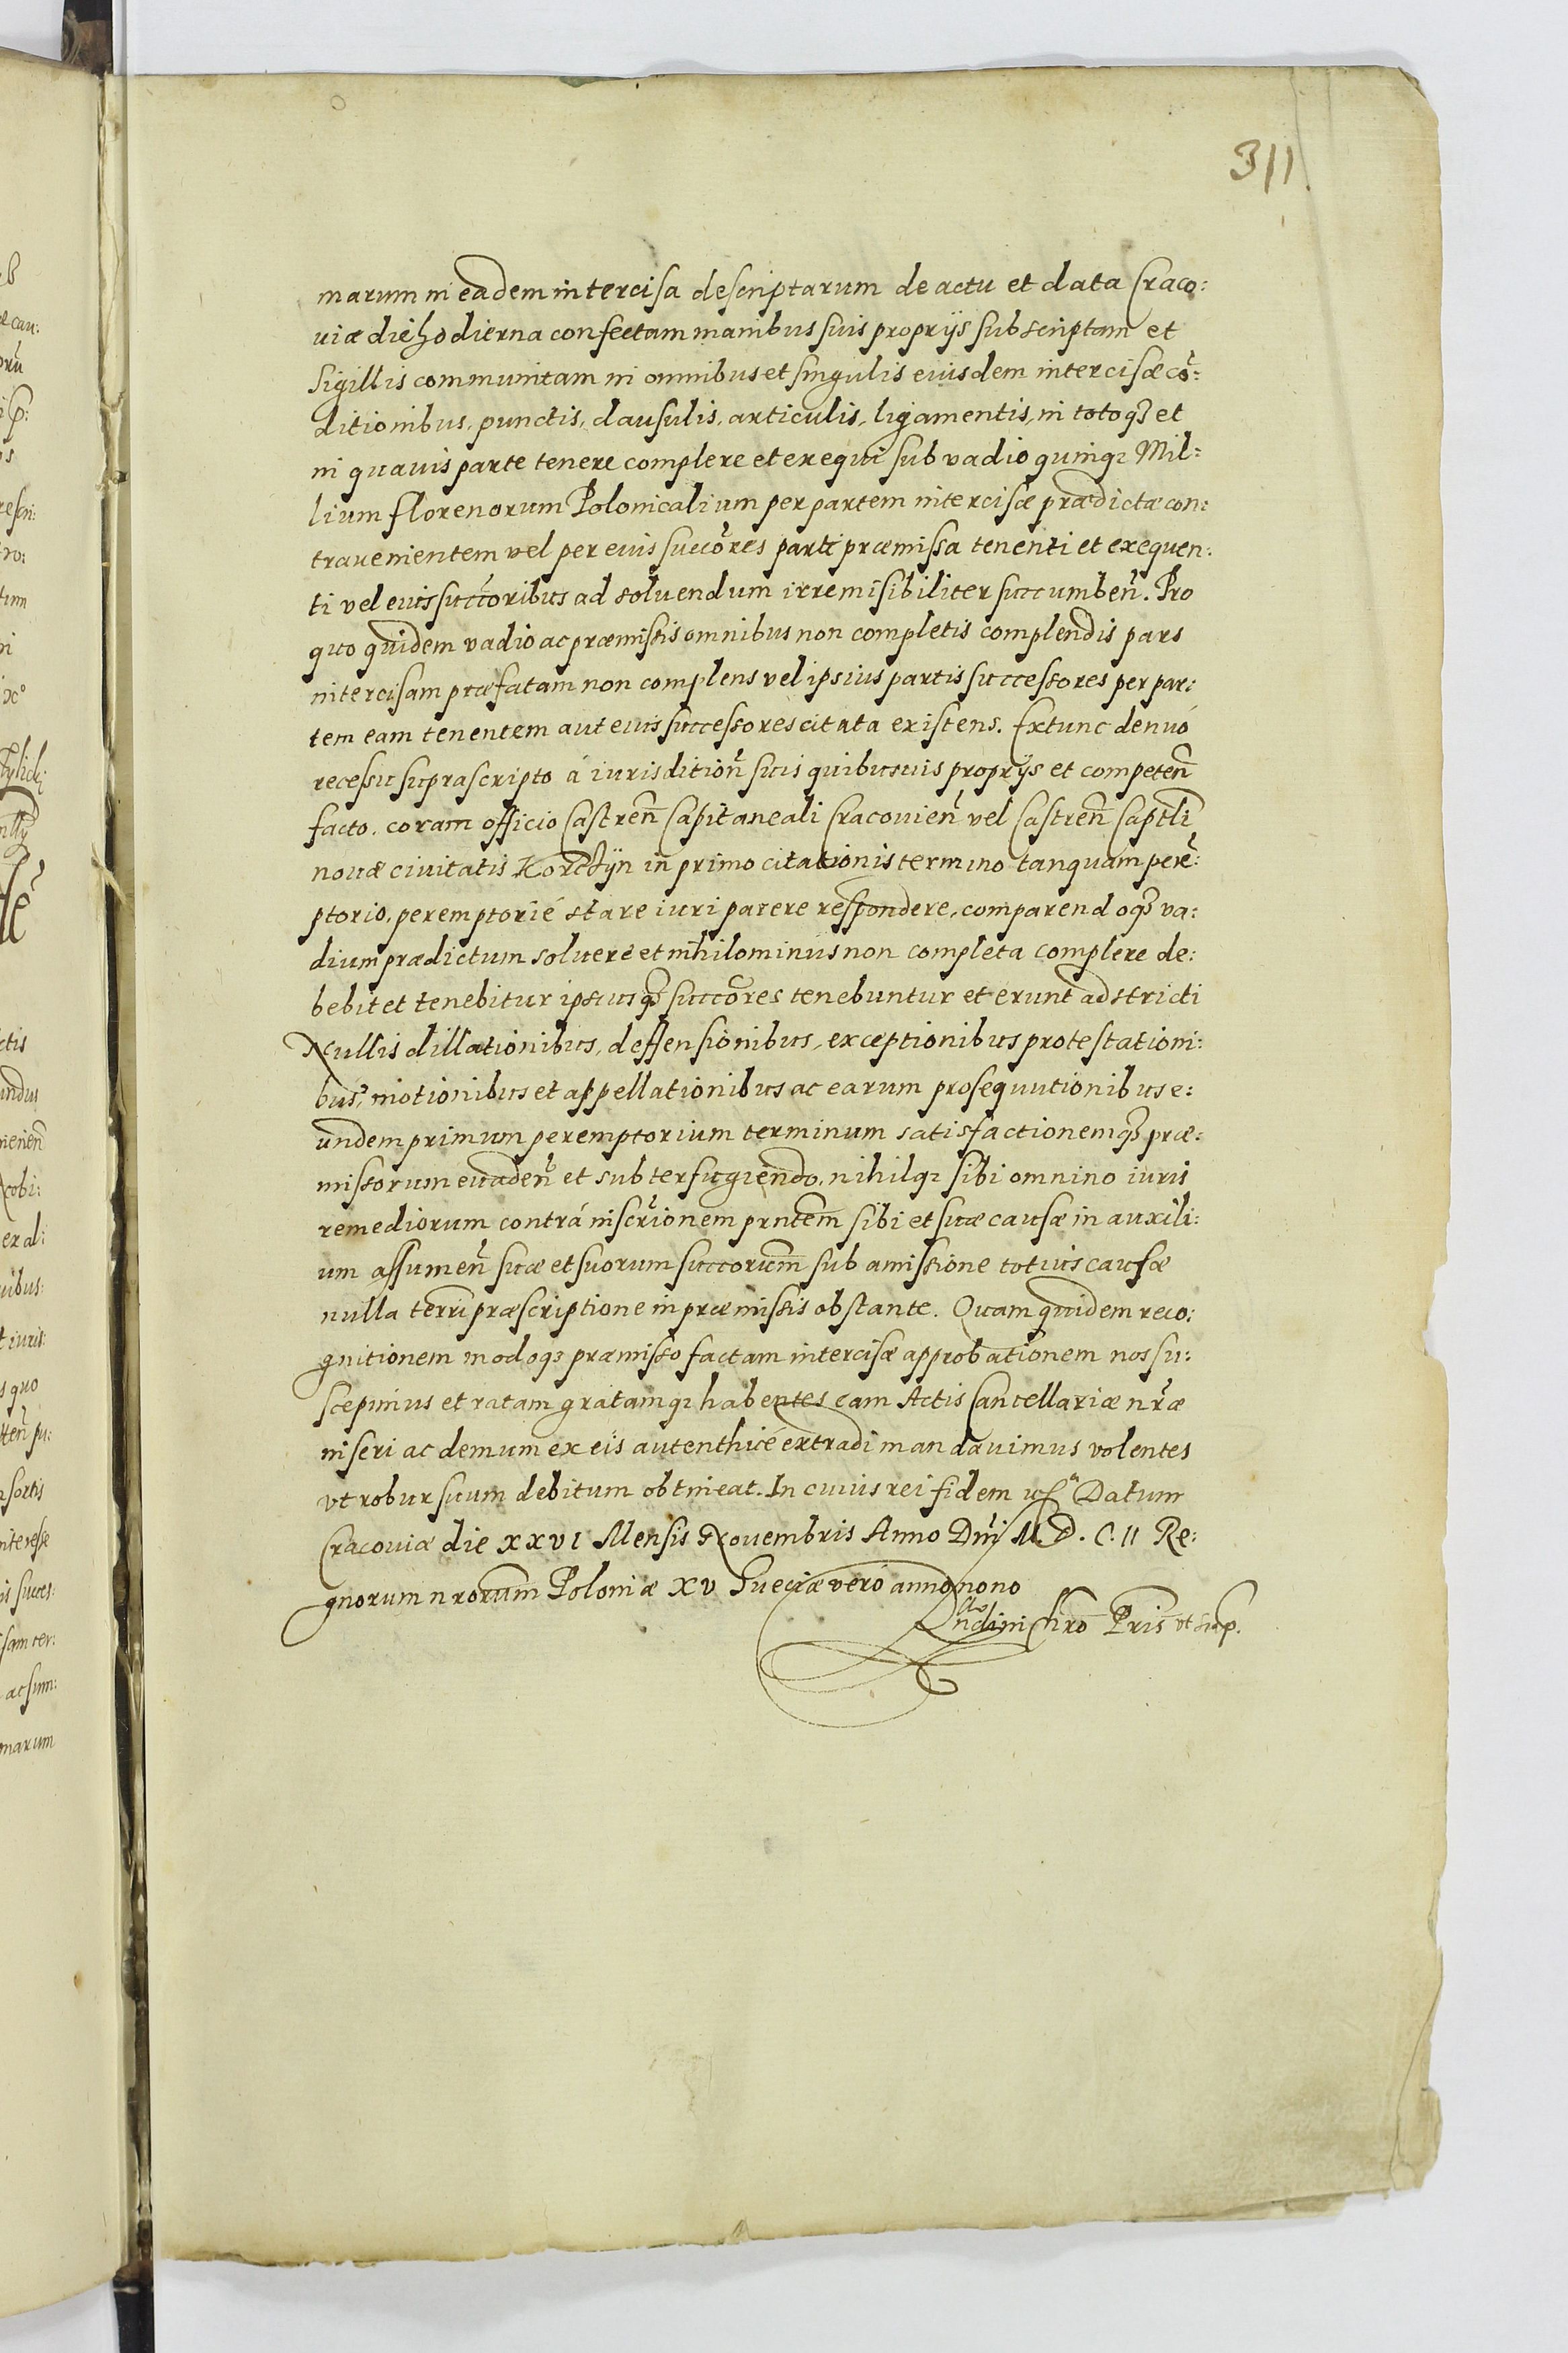 311
marum in eadem intercisa descriptarum de actu et data Craco:
uiæ die hodierna confectam manibus suis proprijs subscriptam et
sigillis communitam in omnibus et singulis eiusdem intercisæ cõ:
ditionibus, punctis, clausulis, articulis, ligamentis, in totoq3 et
in quauis parte tenere complere et exequi sub vadio quinq3 Mil:
lium florenorum Polonicalium per partem intercisæ prædictæ con:
trauenientem vel per eius succõres parti præmissa tenenti et exequen:
ti vel eius succõribus ad soluendum irremisibiliter succumbeñ. Pro
quo quidem vadio ac præmissis omnibus non completis complendis pars
intercisam præfatam non complens vel ipsius partis successores per par:
tem eam tenentem aut eius successores citata existens. Extunc denuó
recessu suprascripto á iurisditioñ suis quibusuis proprijs et competeñ
facto, coram officio Castreñ Capitaneali Cracouieñ vel Castreñ Captli
nouæ ciuitatis Korczijn in primo citationis termino tanquam perẽ:
ptorio, peremptorié stare iuri parere respondere, comparendoq3 va:
dium prædictum soluere et nihilominus non completa complere de:
bebit et tenebitur ipsiusq3 succõres tenebuntur et erunt adstricti
Nullis dillationibus, deffensionibus, exceptionibus protestationi:
bus, motionibus et appellationibus ac earum prosequutionibus e:
undem primum peremptorium terminum satisfactionemq3 præ:
missorum euadeñ et subterfugiendo, nihilq3 sibi omnino iuris
remediorum contrá inscrionem prntem sibi et suæ causæ in auxili:
um assumeñ suæ et suorum succorum sub amissione totius causæ
nulla terri præscriptione in præmissis obstante. Quam quidem reco:
gnitionem modoq3 præmisso factam intercisæ approbationem nos su:
scepimus et ratam gratamq3 habentes eam Actis Cancellariæ nræ
inseri ac demum ex eis autenthicé extradi mandauimus volentes
vt robur suum debitum obtineat. In cuius rei fidem Datum
Cracouiæ die XXVI Mensis Nouembris Anno Dñi M.D.C.II Re:
gnorum nrorum Poloniæ XV Sueciæ vero anno nono
Pris vt sup.